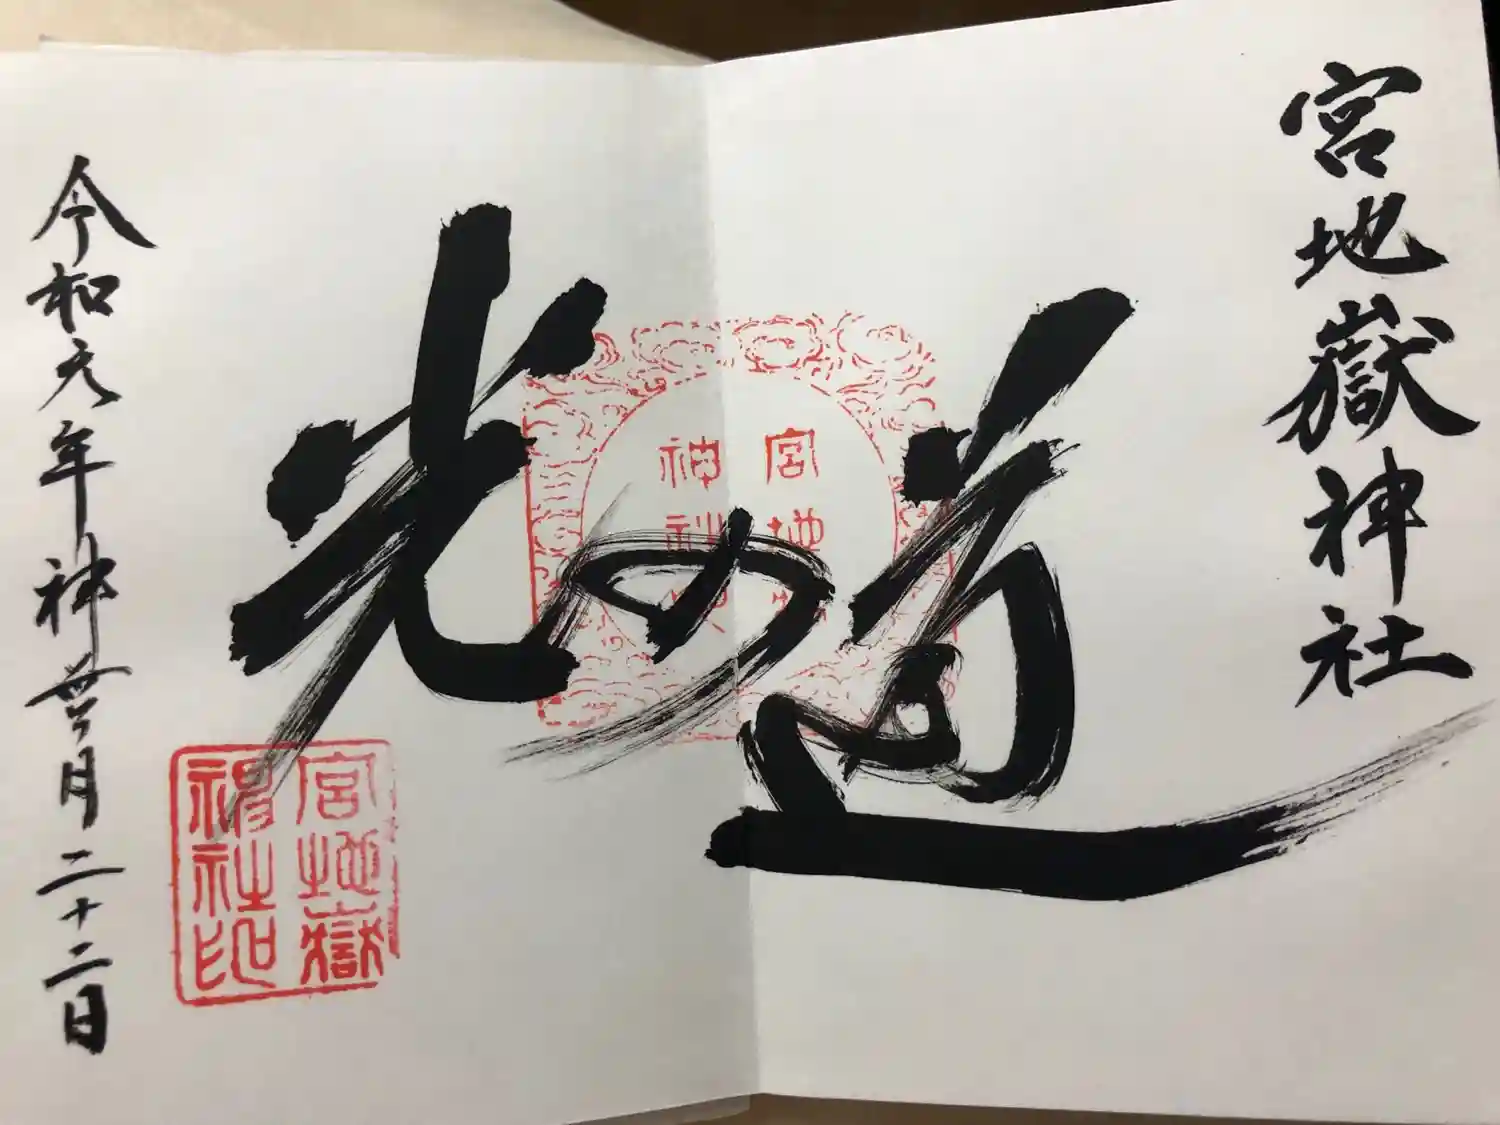 宮地嶽神社
光の道
宮地嶽
神社
宮地嶽
神社印
令和元年神無月二十二日